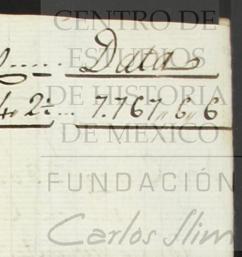 CENTRO DE
ESTUDIOS
DE HISTORIA
DE MÉXICO
Data
2½... 7.767,, 6,, 6
FUNDACIÓN
Carlos Slim